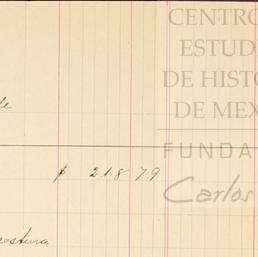 CENTRO
ESTUD
DE HISTO
DE MEX
FUNDA
Carlos
de
$ 218 79
costura